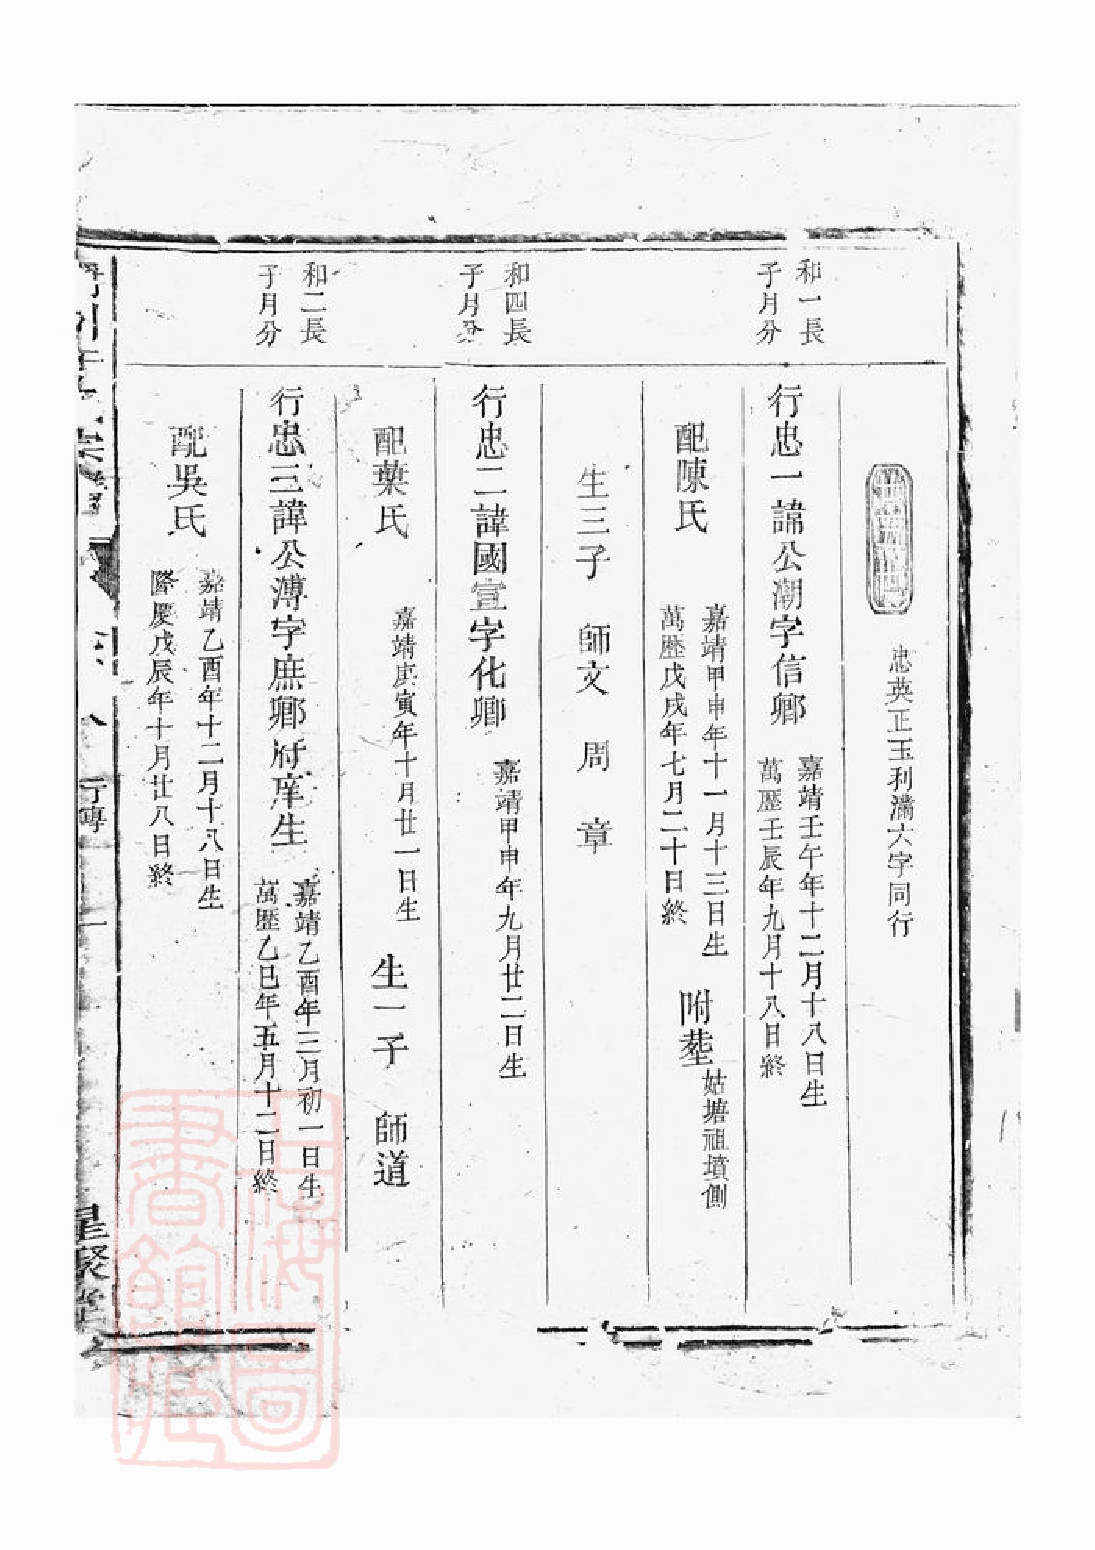 忠英正玉利溝六字同行
和一長
子月分
行忠一諱公潮字信鄉
嘉靖壬午年十二月十八日生
萬歷壬辰年九月十八日終
配陳氏
嘉靖甲申年十一月十三日生
萬歷戊戌年七月二十日終
附塟
姑塘祖墳側
生三子 師文 周 章
和四長
子月分
行忠二諱國宣字化卿
嘉靖甲申年九月廿二日生
配葉氏
嘉靖庚寅年十月廿一日生
生一子 師道
和二長
子月分
行忠三諱公溥字庶鄉府庠生
嘉靖乙酉年三月初一日生
萬歷乙巳年五月十二日終
配吳氏
嘉靖乙酉年十二月十八日生
隆慶戊辰年十月廿八日終
行傳
星聚堂
上海圖
書館藏